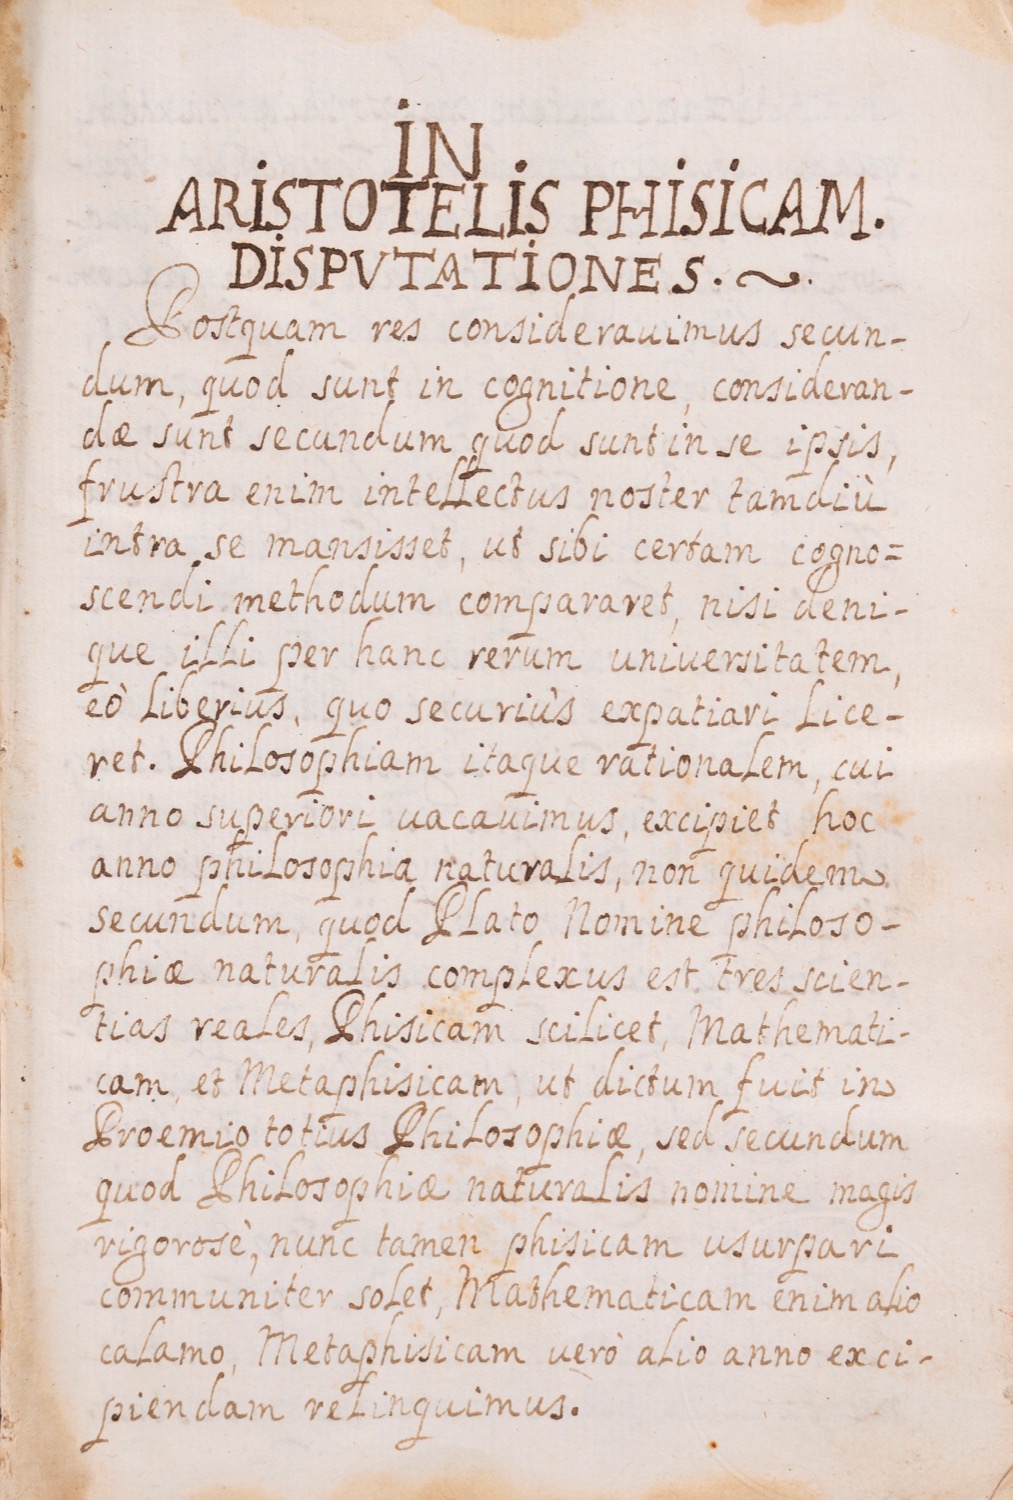 IN
ARISTOTELIS PHISICAM.
DISPVTATIONES. ~.
Postquam res considerauimus secun-
dum, quod sunt in cognitione, consideran-
dæ sunt secundum quod sunt in se ipsis,
frustra enim intellectus noster tamdiù
intra se mansisset, ut sibi certam cogno=
scendi methodum compararet, nisi deni-
que illi per hanc rerum uniuersitatem,
eò liberius, quo securiùs expatiari lice-
ret. Philosophiam itaque rationalem, cui
anno superiori uacauimus, excipiet hoc
anno philosophia naturalis, non quidem
secundum, quod Plato Nomine philoso-
phiæ naturalis complexus est tres scien-
tias reales, Phisicam scilicet, Mathemati-
cam, et Metaphisicam, ut dictum fuit in
Proemio totius Philosophiæ, sed secundum
quod Philosophiæ naturalis nomine magis
rigorosè, nunc tamen phisicam usurpari
communiter solet, Mathematicam enim alio
calamo, Metaphisicam uerò alio anno exci-
piendam relinquimus.